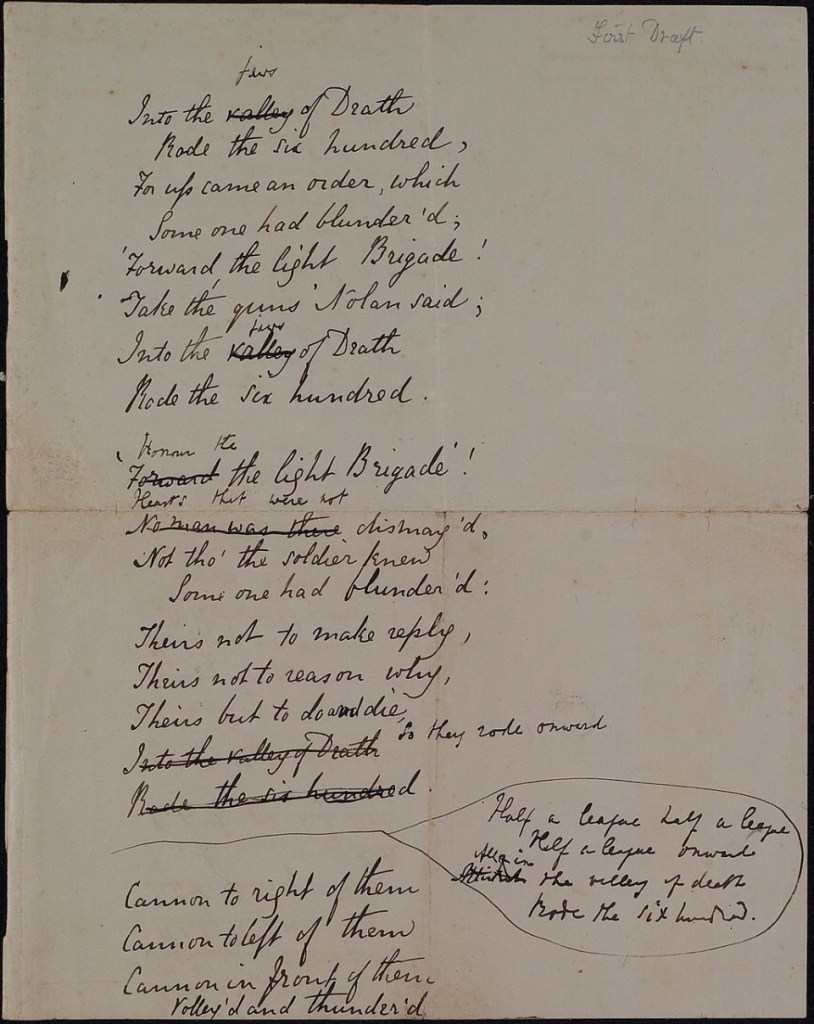 First Draft
jaws
Into the valley of Death
Rode the six hundred,
For up came an order, which
Some one had blunder'd;
'Forward, the light Brigade!
Take the guns' Nolan said;
jaws
Into the valley of Death
Rode the six hundred.
Honour the
'Forward the light Brigade'!
Hearts that were not
No man was there dismay'd,
Not tho' the soldier knew
Some one had blunder'd:
Theirs not to make reply,
Theirs not to reason why,
Theirs but to do and die,
So they rode onward
Into the valley of Death
Rode the six hundred.
Half a league half a league
Half a league onward
All in
the valley of death
Rode the six hundred.
Cannon to right of them
Cannon to left of them
Cannon in front of them
Volley'd and thunder'd